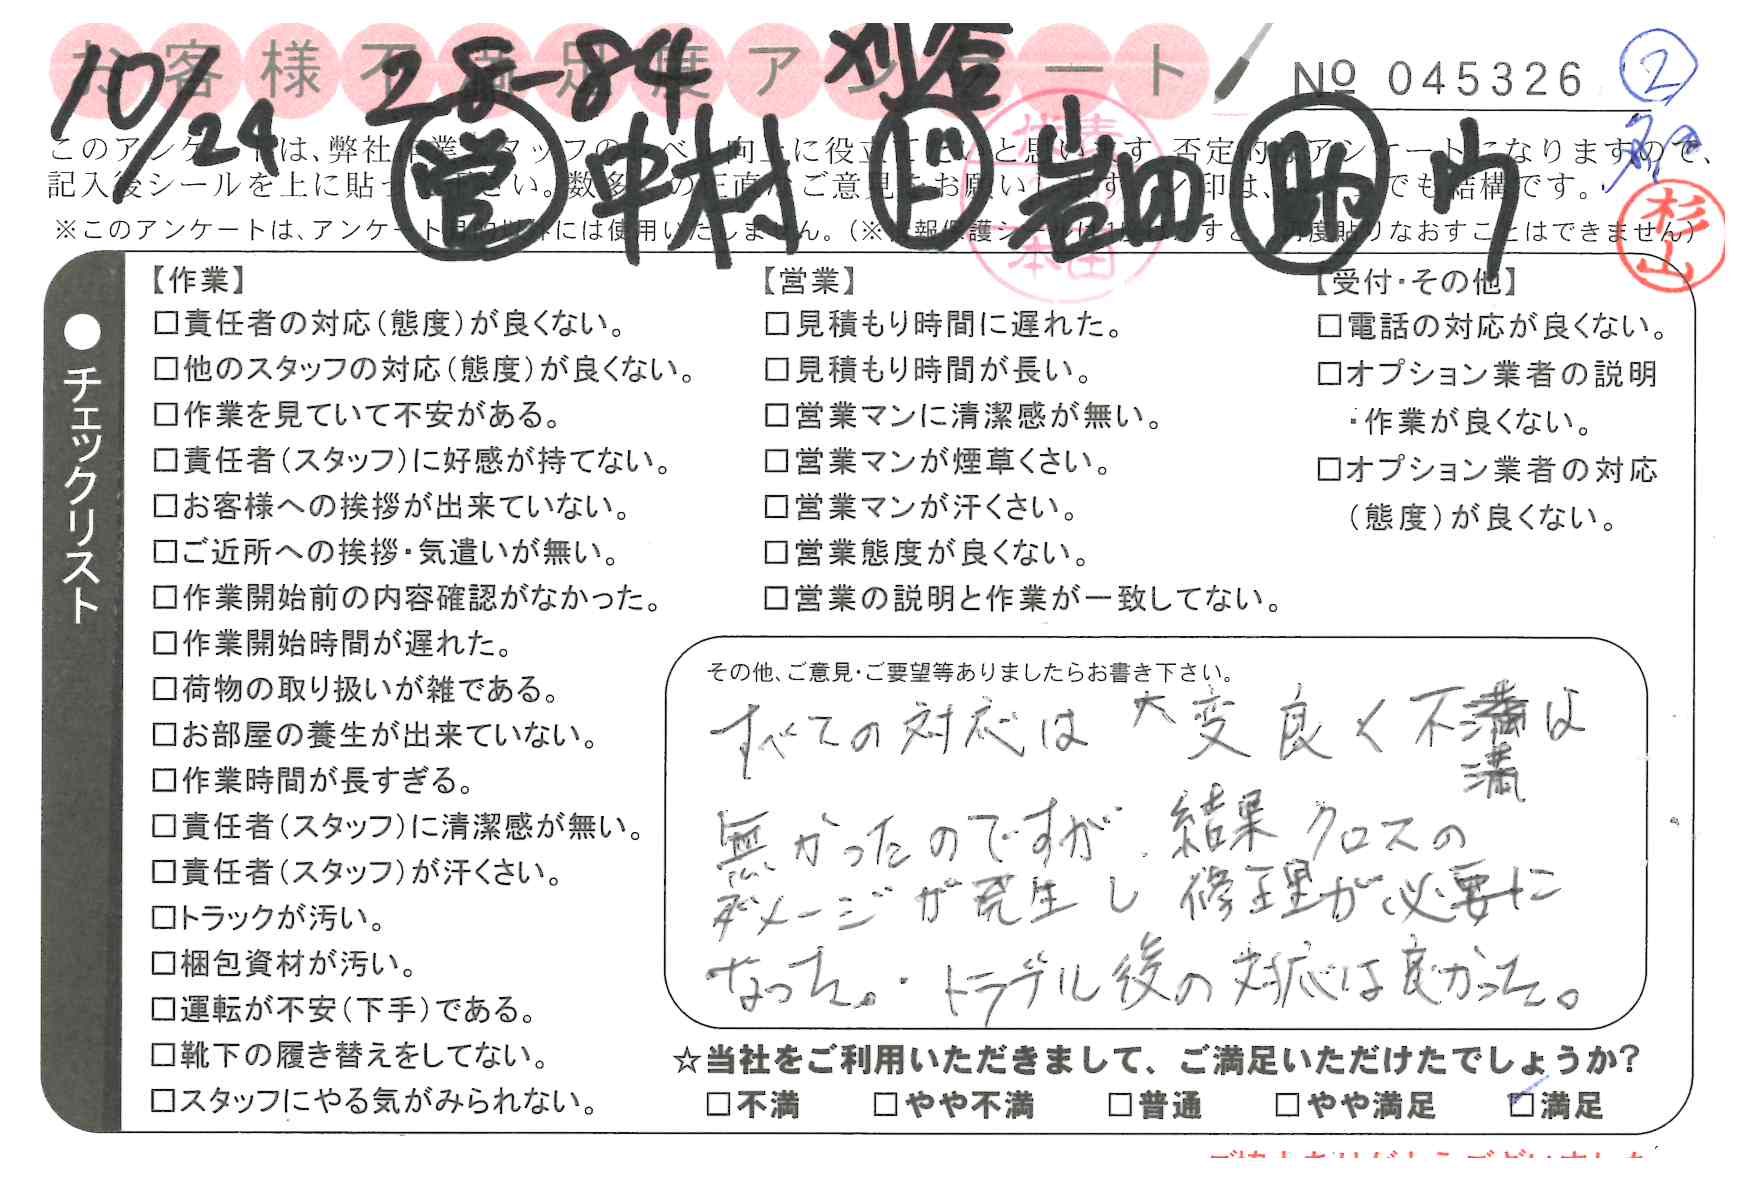 お客様不満足度アンケート
No 045326
②
10/24 28-84 刈谷
営 中村 ド 岩田 助
このアンケートは、弊社作業スタッフのレベル向上に役立てたいと思います。否定的なアンケートになりますので、
記入後シールを上に貼って下さい。数多くの正直なご意見をお願いします。
※このアンケートは、アンケート目的以外には使用いたしません。
杉山
●チェックリスト
【作業】
□責任者の対応(態度)が良くない。
□他のスタッフの対応(態度)が良くない。
□作業を見ていて不安がある。
□責任者(スタッフ)に好感が持てない。
□お客様への挨拶が出来ていない。
□ご近所への挨拶・気遣いが無い。
□作業開始前の内容確認がなかった。
□作業開始時間が遅れた。
□荷物の取り扱いが雑である。
□お部屋の養生が出来ていない。
□作業時間が長すぎる。
□責任者(スタッフ)に清潔感が無い。
□責任者(スタッフ)が汗くさい。
□トラックが汚い。
□梱包資材が汚い。
□運転が不安(下手)である。
□靴下の履き替えをしてない。
□スタッフにやる気がみられない。
【営業】
□見積もり時間に遅れた。
□見積もり時間が長い。
□営業マンに清潔感が無い。
□営業マンが煙草くさい。
□営業マンが汗くさい。
□営業態度が良くない。
□営業の説明と作業が一致してない。
【受付・その他】
□電話の対応が良くない。
□オプション業者の説明
・作業が良くない。
□オプション業者の対応
(態度)が良くない。
その他、ご意見・ご要望等ありましたらお書き下さい。
すべての対応は大変良く不満は
無かったのですが、結果クロスの
ダメージが発生し修理が必要に
なった。・トラブル後の対応は良かった。
☆当社をご利用いただきまして、ご満足いただけたでしょうか?
□不満 □やや不満 □普通 □やや満足 □満足